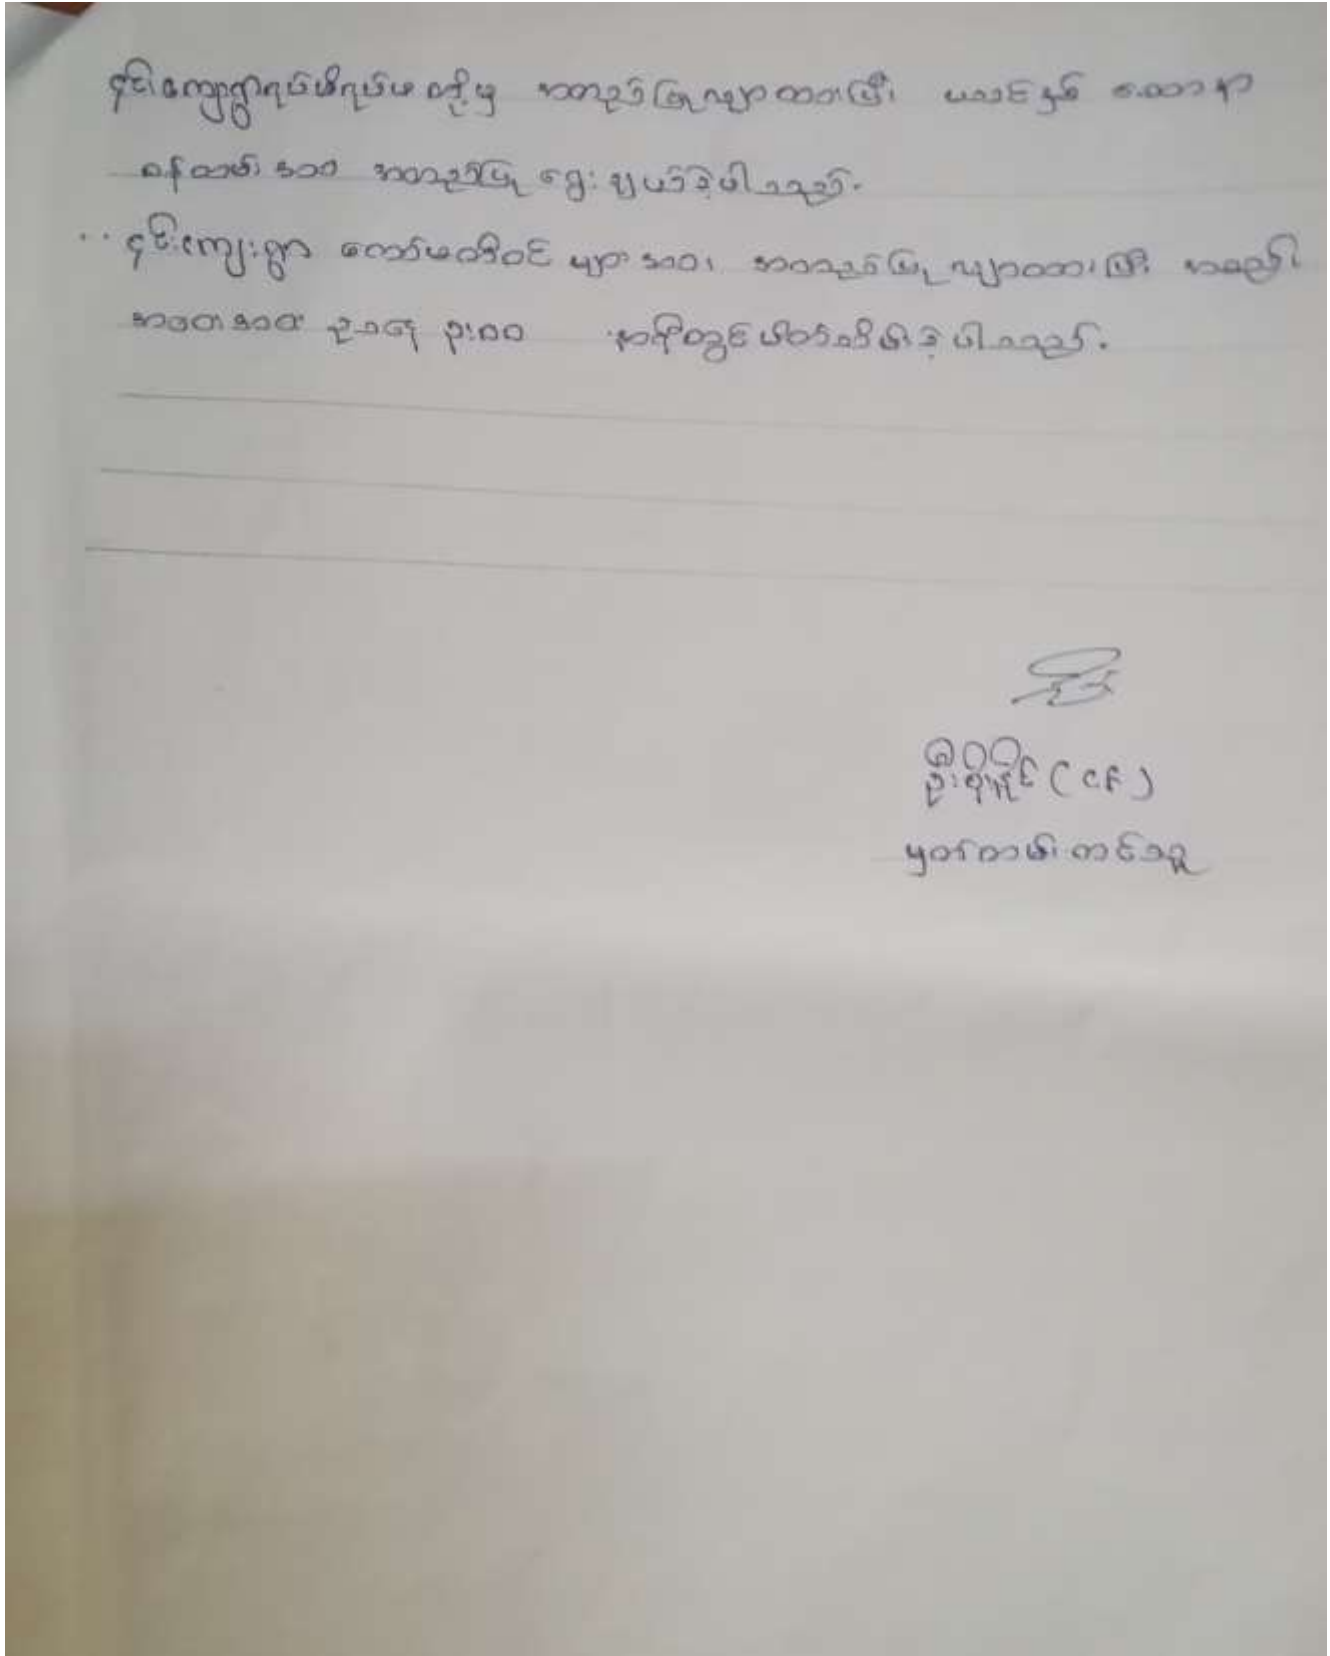 ၎င်းကျေးရွာရပ်မိရပ်ဖ တို့မှ အတည်ပြုလျာထားပြီး ယခင်နှစ် စေတနာ့
ဝန်ထမ်း အား အတည်ပြု ရွေးချယ်ခဲ့ပါသည်.
၎င်းကျေးရွာ ကော်မတီဝင် များ အား အတည်ပြု လျာထားပြီး အစည်း
အဝေးအား ညနေ အချိန်တွင် ပိတ်သိမ်းခဲ့ပါသည်.
ဦးစိုးလှိုင် (CF)
မှတ်တမ်းတင်သူ